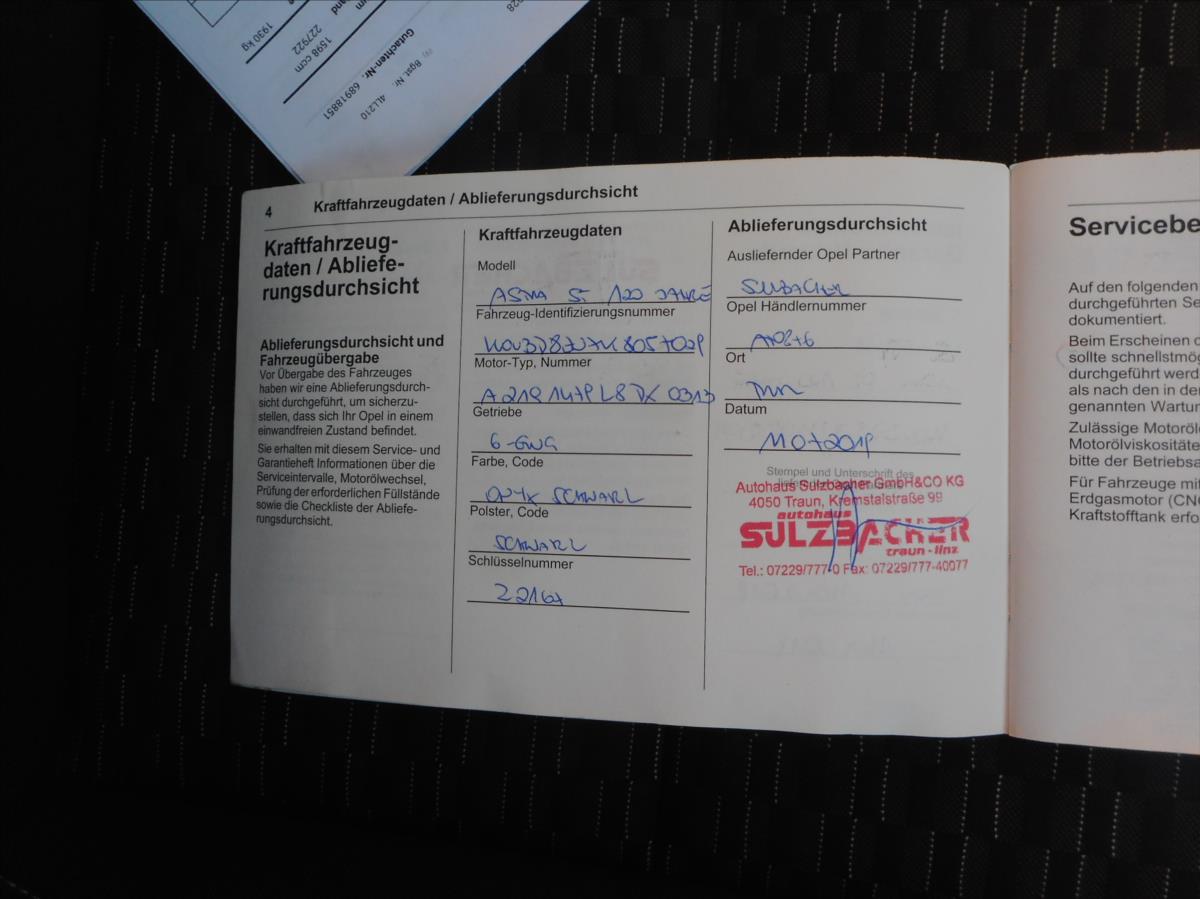 028
1930 kg
227922
1598 ccm
Gutachten-Nr. 68918851
Bgst. Nr. 4LL210
4 Kraftfahrzeugdaten / Ablieferungsdurchsicht
Kraftfahrzeug-
daten / Abliefe-
rungsdurchsicht
Ablieferungsdurchsicht und
Fahrzeugübergabe
Vor Übergabe des Fahrzeuges
haben wir eine Ablieferungsdurch-
sicht durchgeführt, um sicherzu-
stellen, dass sich Ihr Opel in einem
einwandfreien Zustand befindet.
Sie erhalten mit diesem Service- und
Garantieheft Informationen über die
Serviceintervalle, Motorölwechsel,
Prüfung der erforderlichen Füllstände
sowie die Checkliste der Abliefe-
rungsdurchsicht.
Kraftfahrzeugdaten
Modell
120 JAHRE
Fahrzeug-Identifizierungsnummer
Motor-Typ, Nummer
Getriebe
6-GNG
Farbe, Code
ONYX SCHWARZ
Polster, Code
SCHWARZ
Schlüsselnummer
Ablieferungsdurchsicht
Ausliefernder Opel Partner
Opel Händlernummer
Ort
Datum
11072019
Stempel und Unterschrift des
Autohaus Sulzbacher GmbH&CO KG
4050 Traun, Kremstalstraße 99
autohaus
SULZBACHER
traun - linz
Tel.: 07229/777-0 Fax: 07229/777-40077
Servicebe
Auf den folgenden
durchgeführten Se
dokumentiert.
Beim Erscheinen d
sollte schnellstmög
durchgeführt werd
als nach den in der
genannten Wartun
Zulässige Motoröl
Motorölviskositäte
bitte der Betriebsa
Für Fahrzeuge mit
Erdgasmotor (CNG
Kraftstofftank erfo